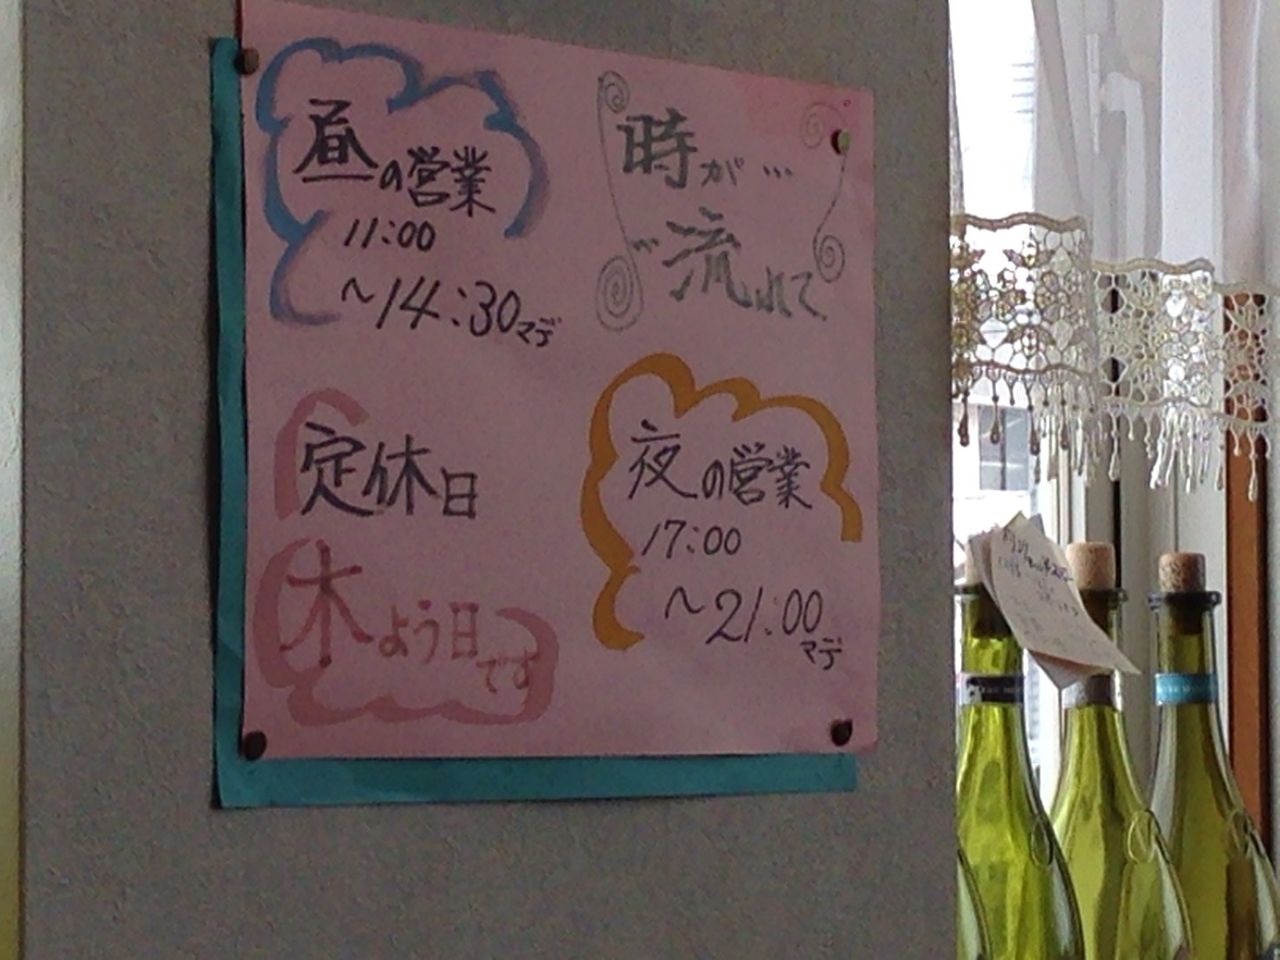 昼の営業
11:00
~14:30マデ
時が…
流れて
夜の営業
17:00
~21:00
マデ
定休日
木よう日です